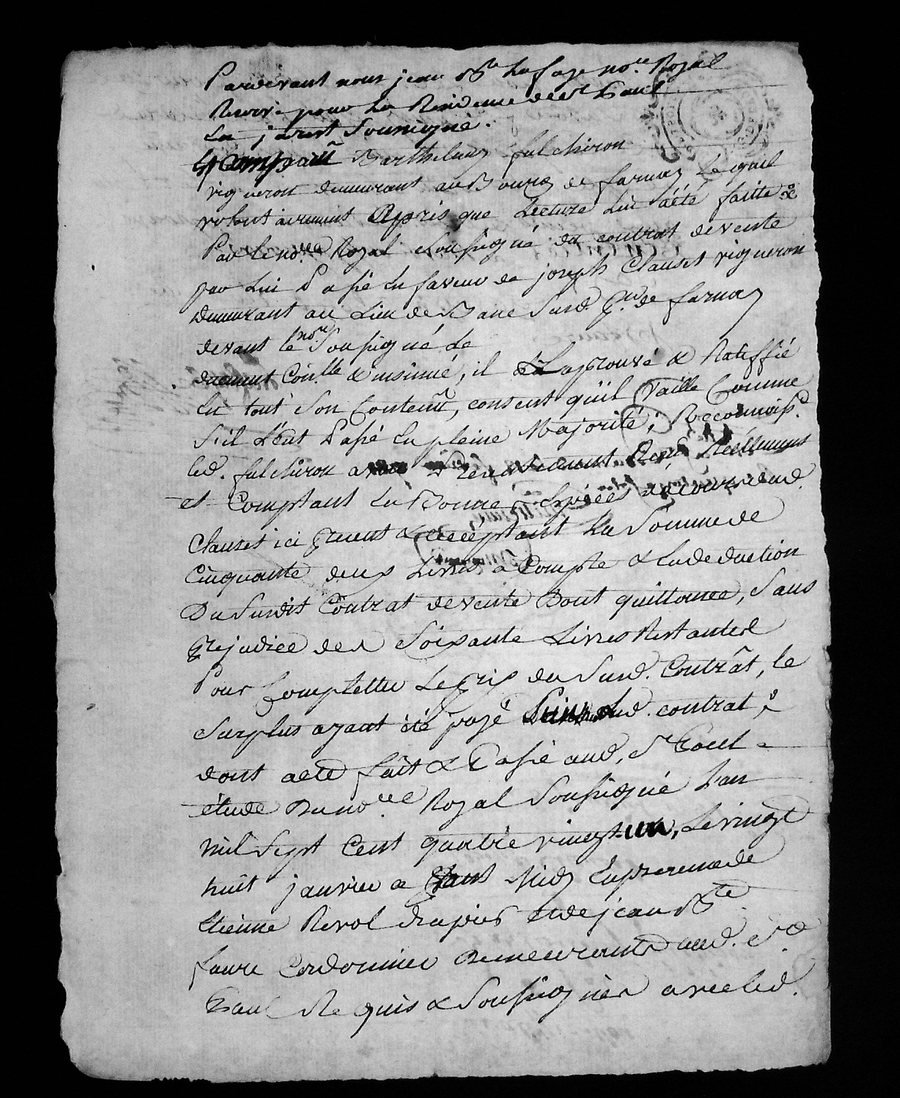 Pardevant nous jean Bte Lafage nore Royal
Reservé pour la Residence de St Paul
En jarest Soussigné.
Est Comparu Barthelemy fulchiron
vigneron demeurant au Bourg de farnay Lequel
volontairement Appris que Lecture Lui a été faitte
Par le nore Royal soussigné du contrat de vente
par Lui Passé En faveur de joseph Clauset vigneron
demeurant au Lieu de Bane Surd. de farnay
devant le nore Soussigné de
duement Con.lle & insinué, il a aprouvé & Rateffié
En tout Son Contenu, consent quïl vaille Comme
S'il L'eut Passé En pleine Majorité; Reconnoiss.t
led. fulchiron avoir presentement Reçu Réellement
et Comptant En Bonnes Espèces de cours dud.
Clauset ici present & acceptant La Somme de
Cinquante deux Livres a Compte & En deduction
Du Susdit Contrat de vente Dont quittance, Sans
Prejudice des Soixante Livres Restantes
Pour Completter Le prix du Susd. Contrât, le
Surplus ayant été payé dud. contrat,
dont acte fait & Passé aud. St Paul
étude Du nore Royal Soussigné L'an
mil Sept Cent quatre vingt un, Le vingt
huit janvier a Midy En presence de
Etienne Revol & de jean Bte
faure Cordonnier Demeurants aud. St
Paul Requis & Soussignés avec led.